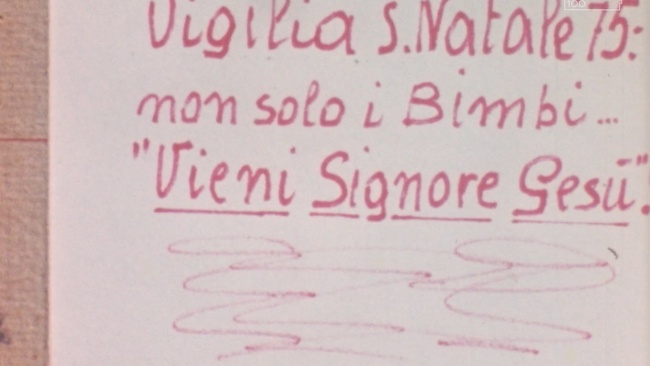 Vigilia S. Natale 75:
non solo i Bimbi...
"Vieni Signore Gesù".